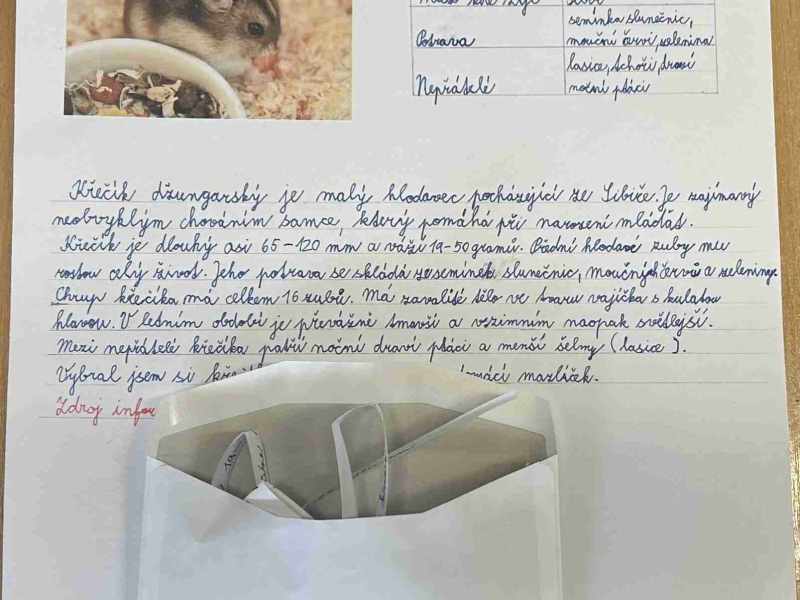 Potrava
semínka slunečnic,
mouční červi, zelenina
Nepřátelé
lasice, tchoři, draví
noční ptáci
Křečík džungarský je malý hlodavec pocházející ze Sibiře. Je zajímavý
neobvyklým chováním samce, který pomáhá při narození mláďat.
Křečík je dlouhý asi 65-120 mm a váží 19-50 gramů. Přední hlodavé zuby mu
rostou celý život. Jeho potrava se skládá ze semínek slunečnic, moučných červů a zeleniny.
Chrup křečíka má celkem 16 zubů. Má zavalité tělo ve tvaru vajíčka s kulatou
hlavou. V letním období je převážně tmavší a v zimním naopak světlejší.
Mezi nepřátelé křečíka patří noční draví ptáci a menší šelmy (lasice).
Vybral jsem si mazlíček.
Zdroj infor